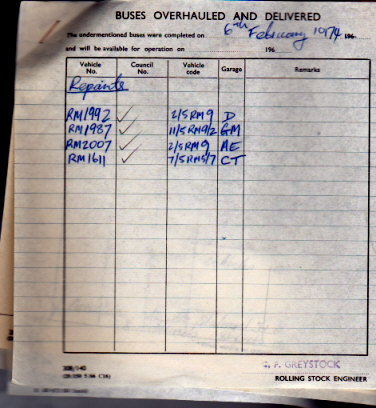 BUSES OVERHAULED AND DELIVERED
The undermentioned buses were completed on 6th February 1974 196
and will be available for operation on 196
Vehicle No. Council No. Vehicle code Garage Remarks
Repaints
RM1992 ✓ 2/5RM9 D
RM1987 ✓ 11/5RM9/2 GM
RM2007 ✓ 2/5RM9 AE
RM1611 ✓ 7/5RM5/7 CT
G. F. GREYSTOCK
ROLLING STOCK ENGINEER